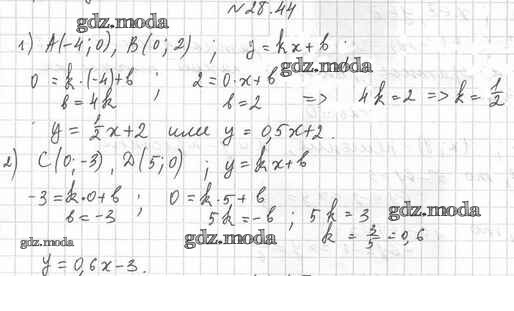 №28.44
gdz.moda
1) A(-4;0), B(0;2) ; y=kx+b
gdz.moda
0 = k·(-4)+b ; 2=0·x+b
b=4k b=2 => 4k=2 => k=1/2
y=1/2x+2 или y=0,5x+2.
2) C(0;-3), D(5;0) ; y=kx+b
-3=k·0+b ; 0=k·5+b
b=-3 5k=-b ; 5k=3 gdz.moda
gdz.moda gdz.moda k=3/5=0,6
y=0,6x-3.